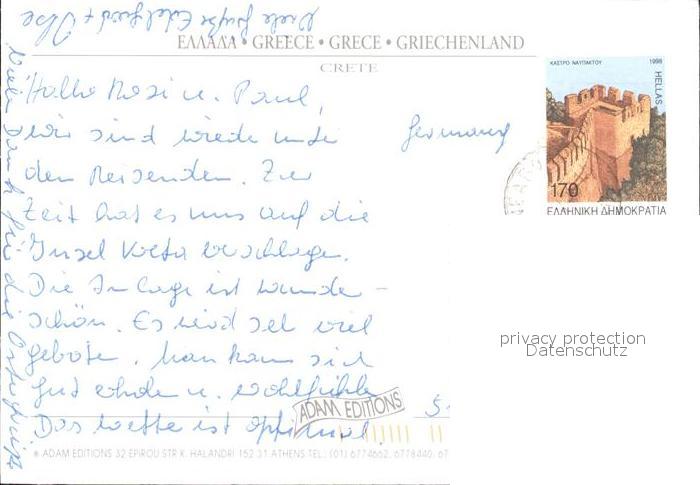 Viele Grüße Edelgard + Uwe
ΕΛΛΑΔΑ • GREECE • GRECE • GRIECHENLAND
CRETE
ΚΑΣΤΡΟ ΝΑΥΠΑΚΤΟΥ 1998
HELLAS
170
ΕΛΛΗΝΙΚΗ ΔΗΜΟΚΡΑΤΙΑ
Hallo Rosi u. Paul,
wir sind wiede unte
den Reisenden. Zur
Zeit hat es uns auf die
Insel Kreta verschlagen.
Die Anlage ist wunde-
schön. Es wird seh viel
gebote. Man kann sich
gut erholen u. wohlfühle
Das Wette ist optimal.
Germany
Vielen Dank für die Ostergrüße
privacy protection
Datenschutz
ADAM EDITIONS
® ADAM EDITIONS 32 EPIROU STR K. HALANDRI 152 31 ATHENS TEL.: (01) 6774662, 6778440, 67